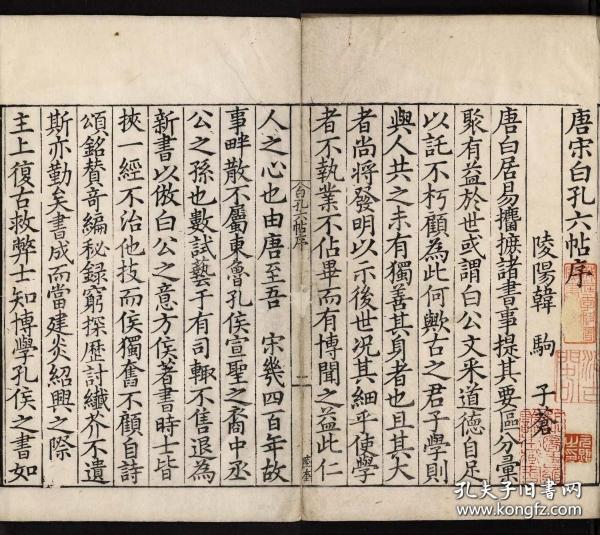 唐宋白孔六帖序
陵陽韓 駒 子蒼
唐白居易攟摭諸書事提其要區分彙
聚有益於世或謂白公文采道德自足
以託不朽顧為此何歟古之君子學則
與人共之未有獨善其身者也且其大
者尚將發明以示後世况其細乎使學
者不執業不佔畢而有博聞之益此仁
白孔六帖序
人之心也由唐至吾 宋幾四百年故
事畔散不屬東魯孔侯宣聖之裔中丞
公之孫也數試藝于有司輙不售退為
新書以倣白公之意方侯著書時士皆
挾一經不治他技而侯獨奮不顧自詩
頌銘賛奇編秘録窮探歴討纎芥不遺
斯亦勤矣書成而當建炎紹興之際
主上復古救弊士知博學孔侯之書如
孔夫子旧书网
www.kongfz.com